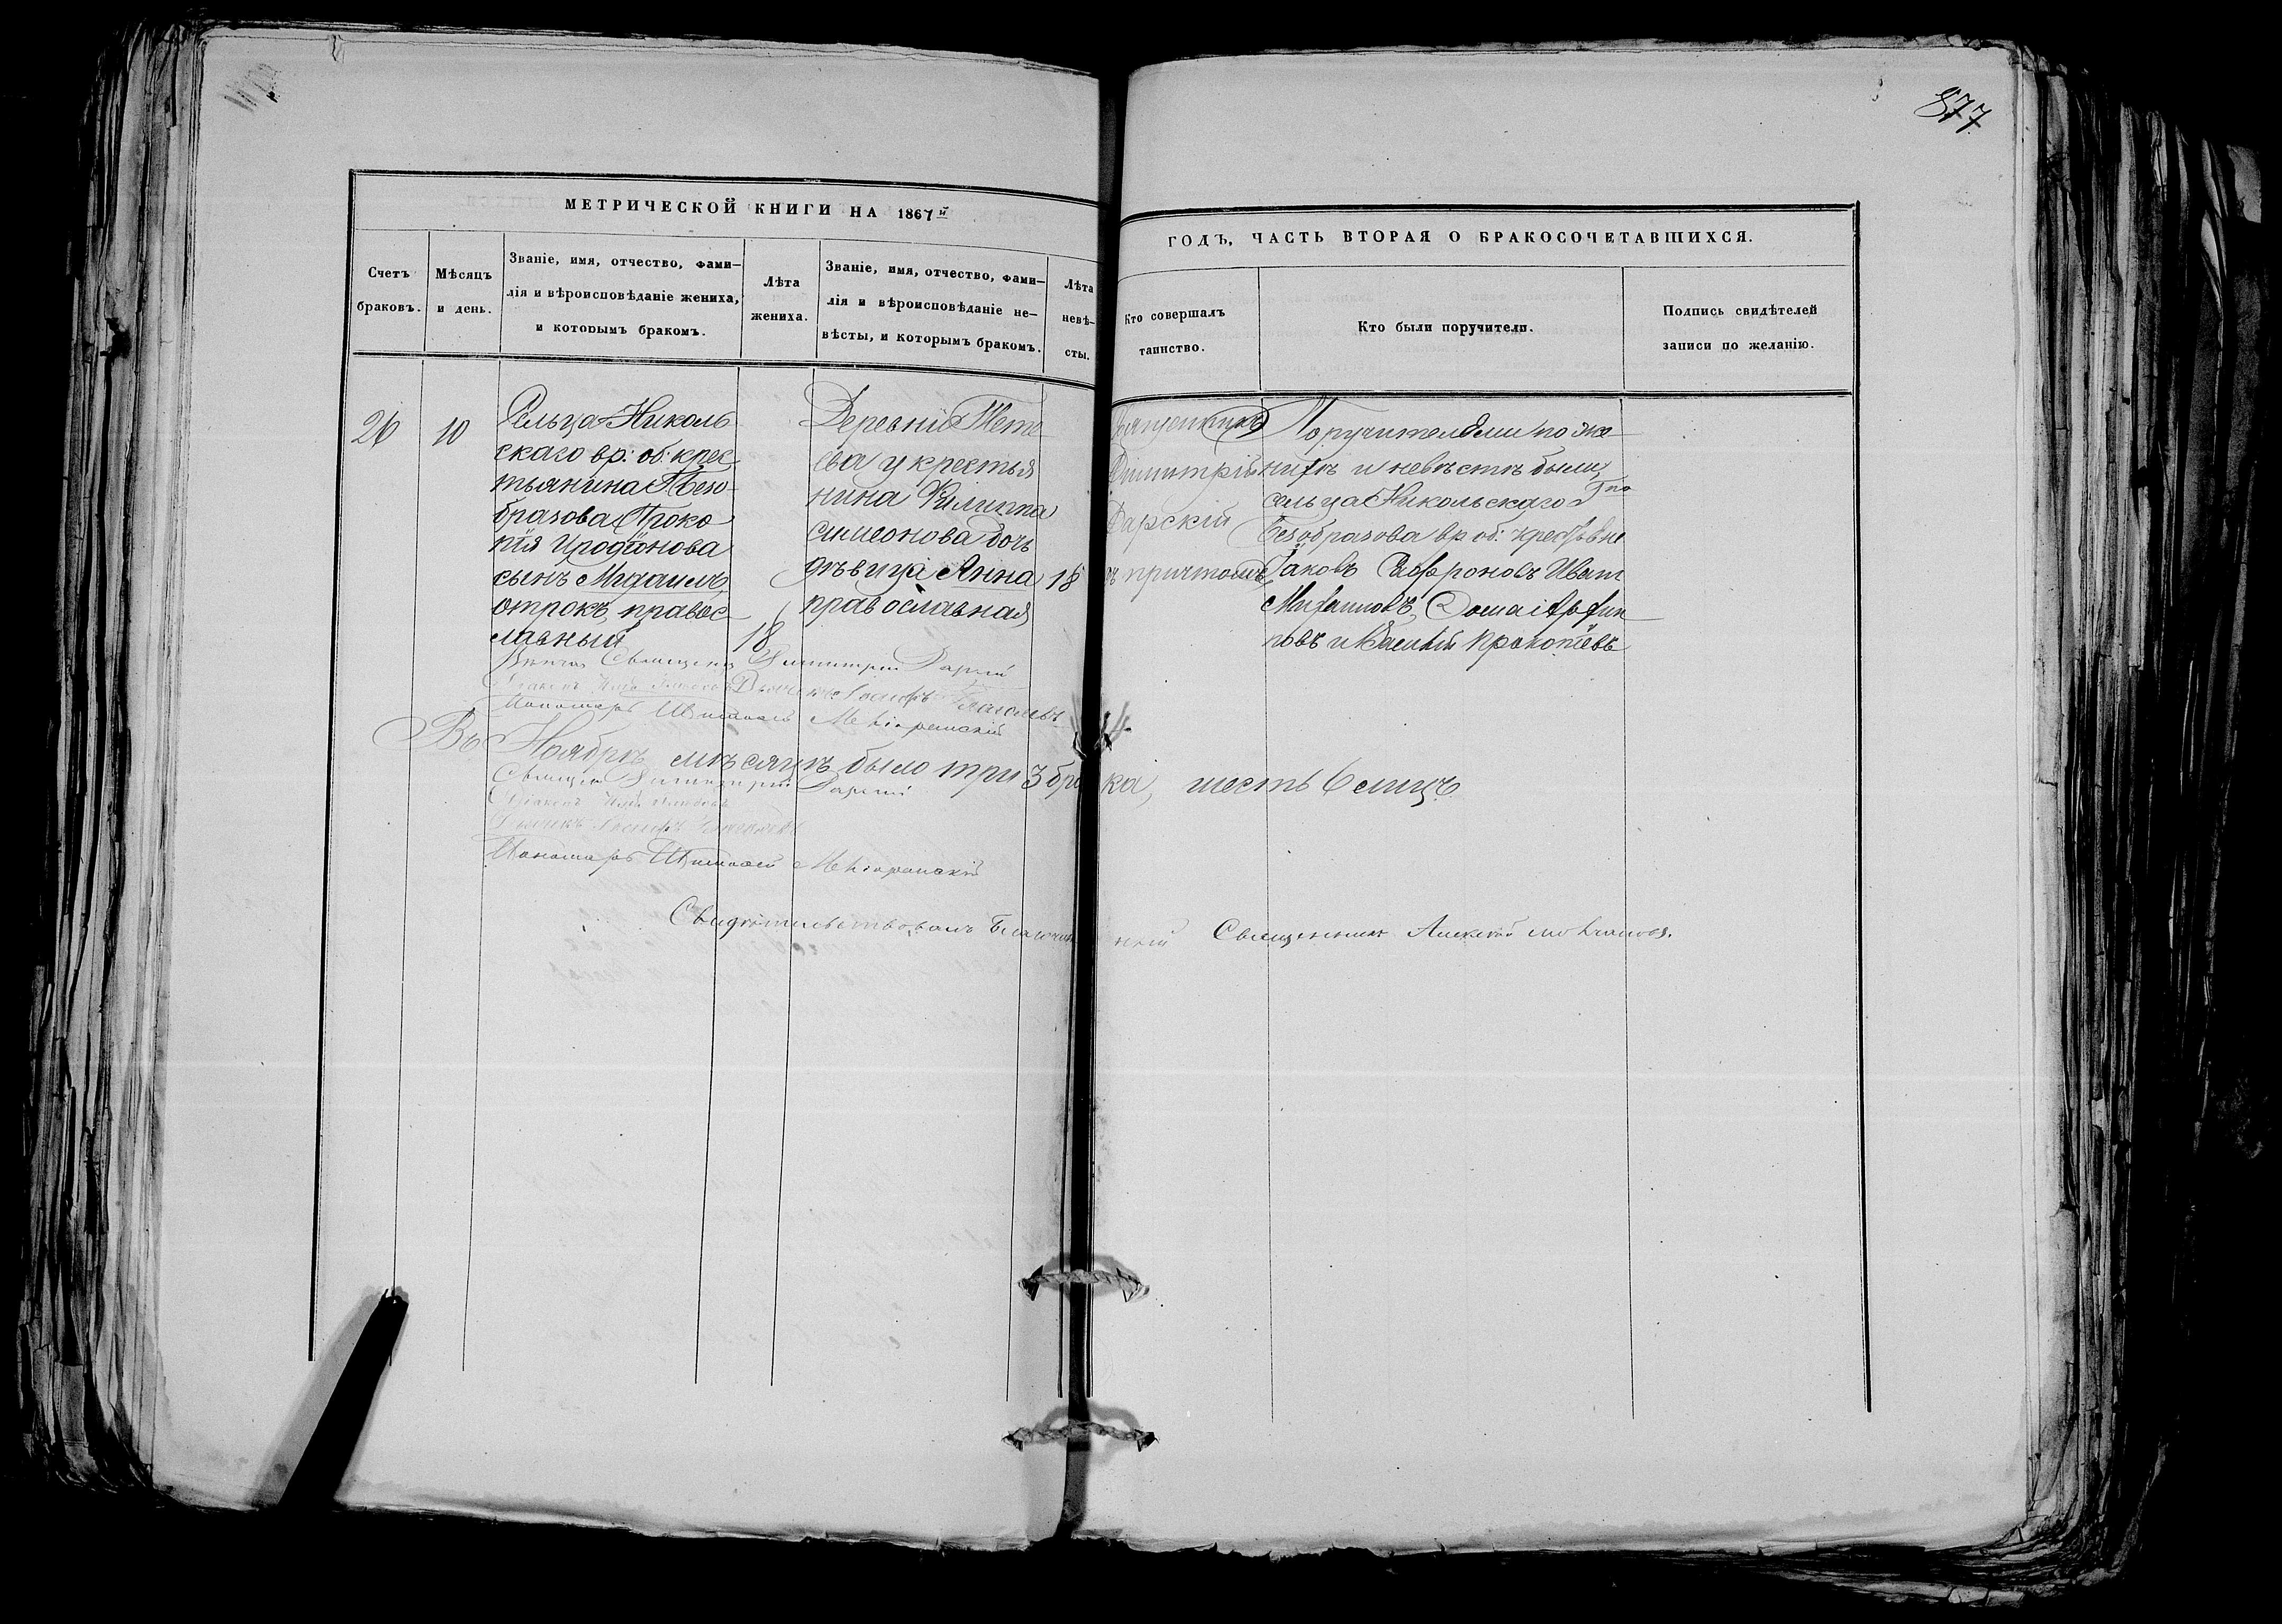 877
МЕТРИЧЕСКОЙ КНИГИ НА 1867й
ГОДЪ, ЧАСТЬ ВТОРАЯ О БРАКОСОЧЕТАВШИХСЯ.
Счетъ
браковъ.
Мѣсяцъ
и день.
Званіе, имя, отчество, фами-
лія и вѣроисповѣданіе жениха,
и которымъ бракомъ.
Лѣта
жениха.
Званіе, имя, отчество, фами-
лія и вѣроисповѣданіе не-
вѣсты, и которымъ бракомъ.
Лѣта
невѣ-
сты.
Кто совершалъ
таинство.
Кто были поручители.
Подпись свидѣтелей
записи по желанію.
26
10
Сельца Николь
скаго вр: об: крес
тьянина Гбезо-
бразова Проко
пія Иродіонова
сынъ Михаилъ,
отрокъ, правос-
лавный
18
Деревни Тете
ева у крестья
нина Филиппа
Симеонова дочь
дѣвица Анна
православная
18
Священникъ
Димитрій
Дарскій
съ причтомъ
Поручителями по же-
нихѣ и невѣстѣ были,
сельца Никольскаго Гна
Безобразова вр. об: крестьяне
Іаковъ Софроновъ Иванъ
Михаиловъ,
повъ и Василій Прокопіевъ
Священникъ Димитрій Дарскій
Пономарь
Въ Ноябрѣ мѣсяцѣ было три 3 брака, шесть 6 лицъ.
Священникъ Димитрій Дарскій
Пономарь
Свидѣтельствовалъ Благочинный Священникъ Алексѣй